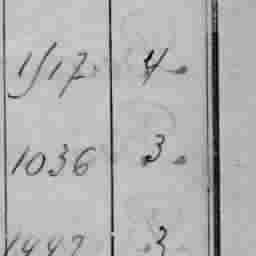 1517 4.
1036 3.
3